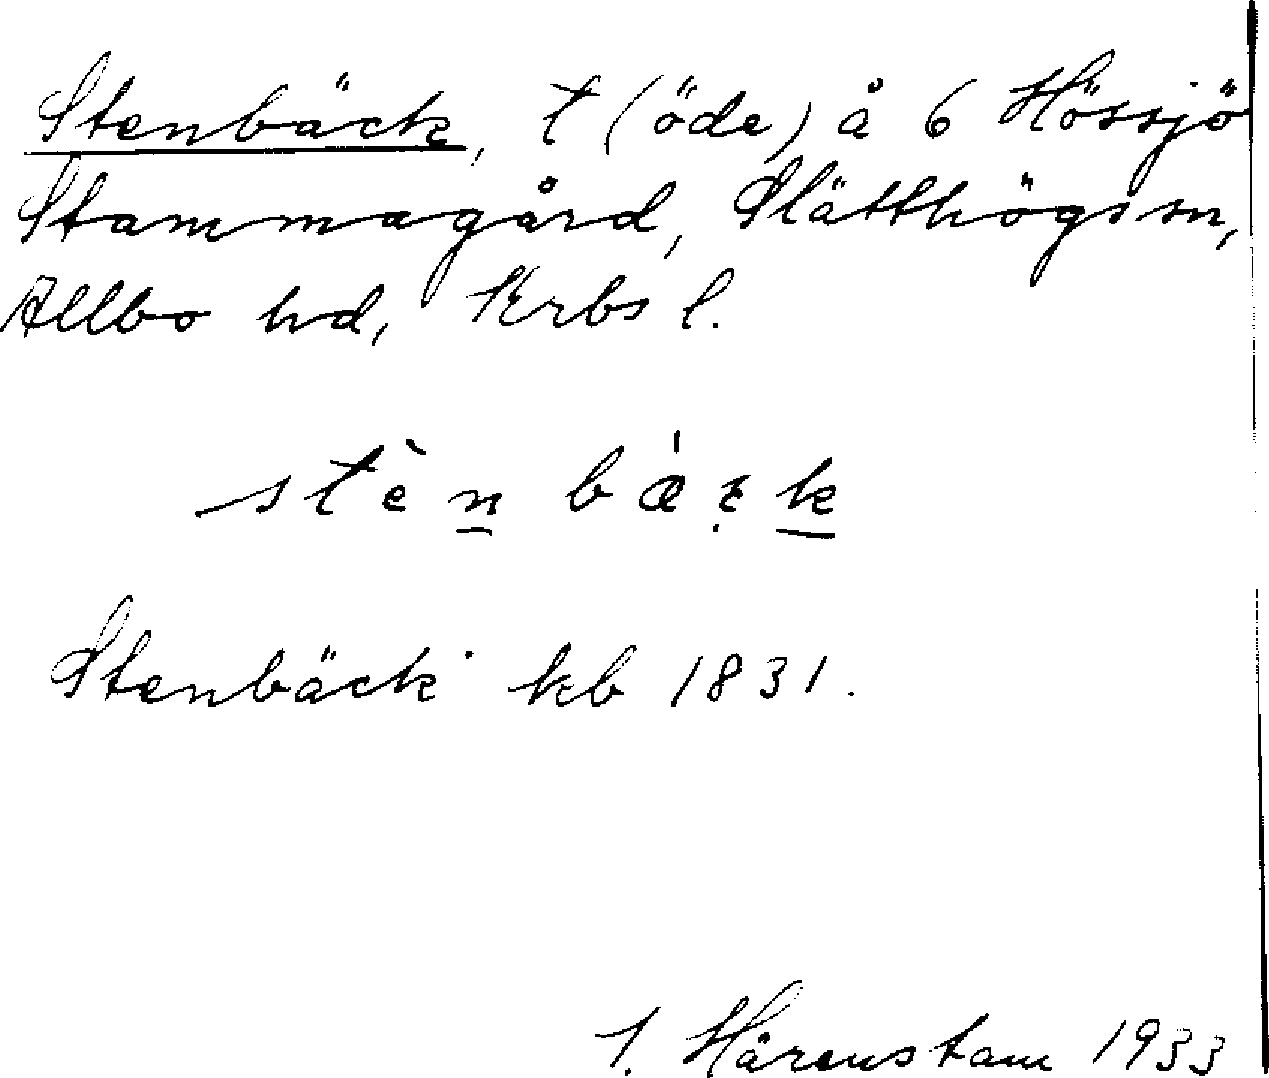 Stenbäck, t (öde) å 6 Hössjö
Stammagård, Slätthögs sn,
Allbo hd, Krbs l.
stèn bæ̀k
Stenbäck kb 1831.
I. Härenstam 1933